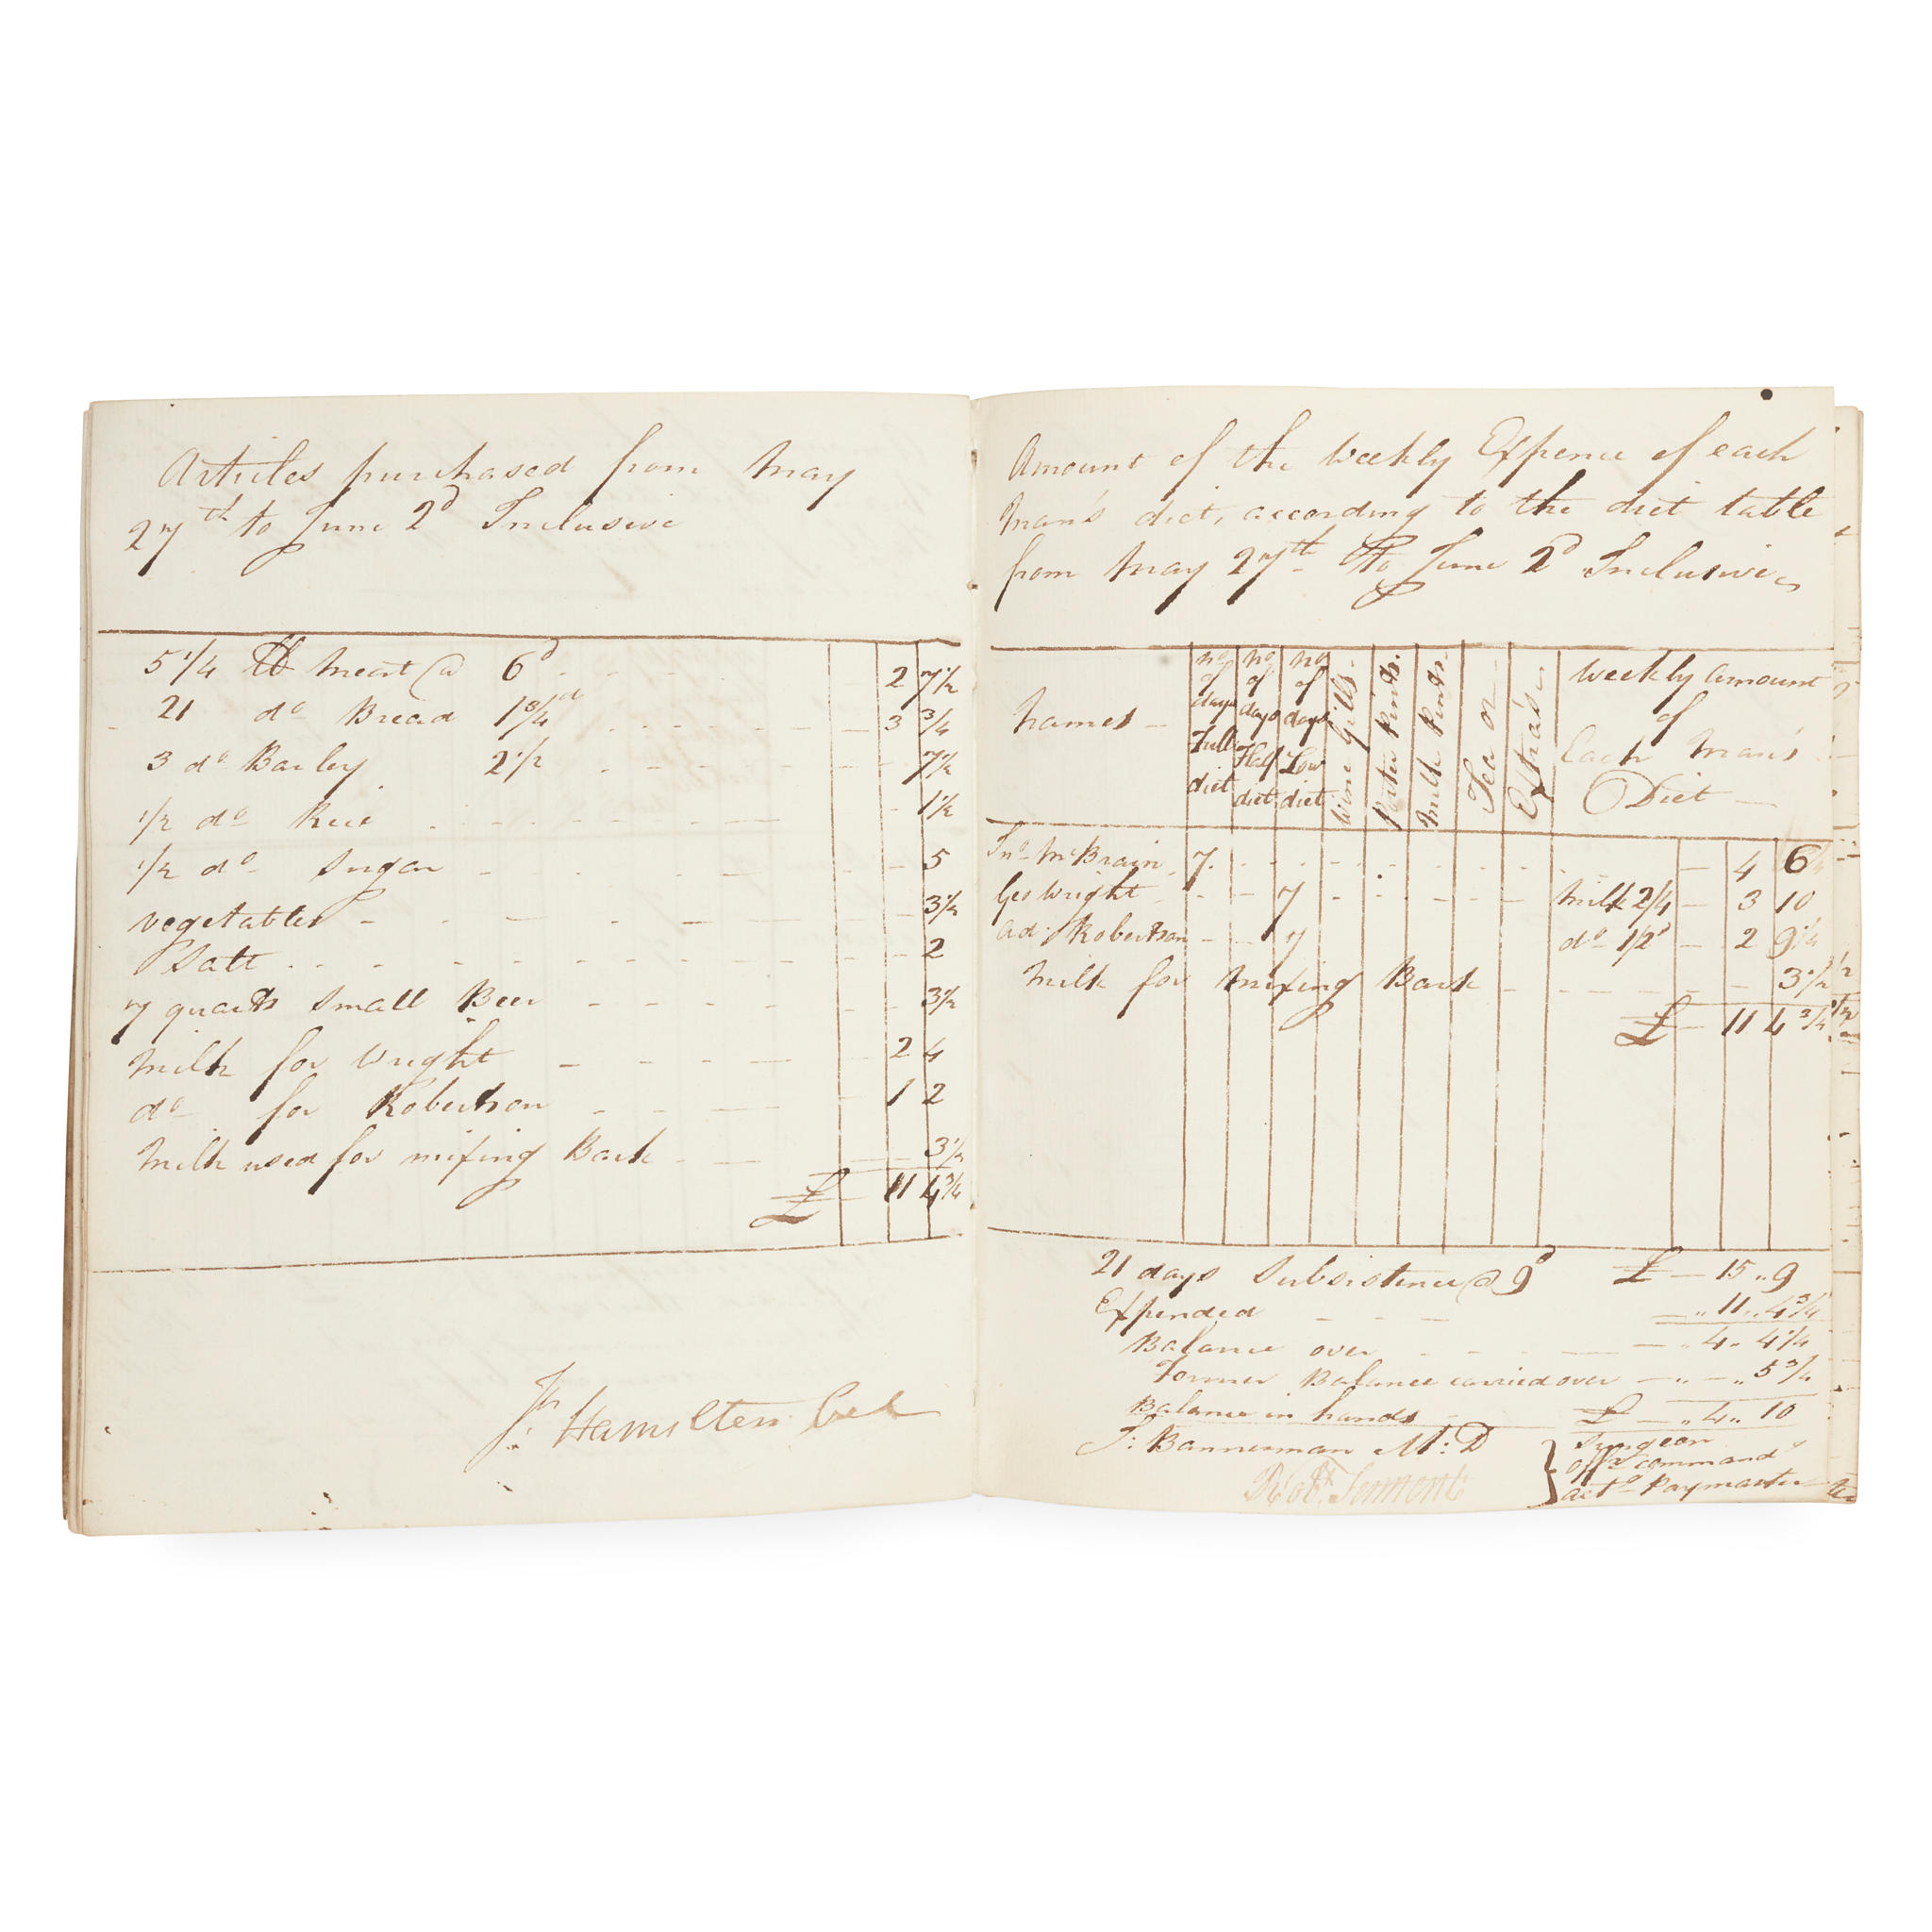 Articles purchased from May
27th to June 2d Inclusive
5 1/4 lb Meat @ 6d - - - 2 7 1/2
21 do Bread 1 3/4d - - - 3 3/4
3 do Barley 2 1/2 - - - 7 1/2
1/2 do Rice - - - 1 1/2
1/2 do Sugar - - - 5
vegetables - - - 3 1/2
Salt - - - 2
7 quarts Small Beer - - - 3 1/2
Milk for Wright - - - 2 4
do for Robertson - - - 1 2
Milk used for mixing Bark - - - 3 1/2
£ - 11 4 3/4
Hamilton
Amount of the Weekly Expence of each
Man's diet, according to the diet table
from May 27th to June 2d Inclusive
Names -
No of days Full diet
No of days Half diet
No of days Low diet
Wine Gills
Porter Pints
Milk Pints
Tea or
Extra's
Weekly amount
of
Each Man's
Diet
Jno McBrain 7 - - - 4 6
Geo Wright - - 7 - - - Milk 2/4 - 3 10
Ad: Robertson - - 7 do 1/2d - 2 9 1/4
Milk for Mixing Bark - - - 3 1/2
£ - 11 4 3/4
21 days Subsistence @ 9d £ - 15 „ 9
Expended - - - „ 11 „ 4 3/4
Balance over - - - „ 4 „ 4 1/4
Former Balance carried over - „ - „ 5 3/4
Balance in hands - £ - „ 4 „ 10
T: Bannerman M:D } Surgeon
Robt. offr commandg
actg Paymaster